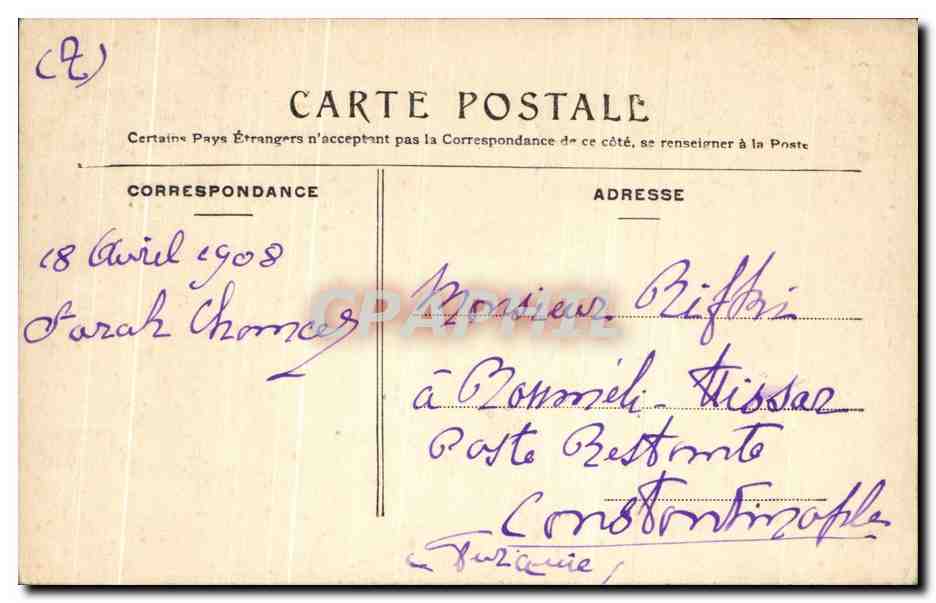 (2)
CARTE POSTALE
Certains Pays Étrangers n'acceptant pas la Correspondance de ce côté, se renseigner à la Poste
CORRESPONDANCE
18 Avril 1908
Sarah
ADRESSE
Monsieur Rifki
à Rouméli-Hissar
Poste Restante
Constantinople
Turquie
CPAPHIL